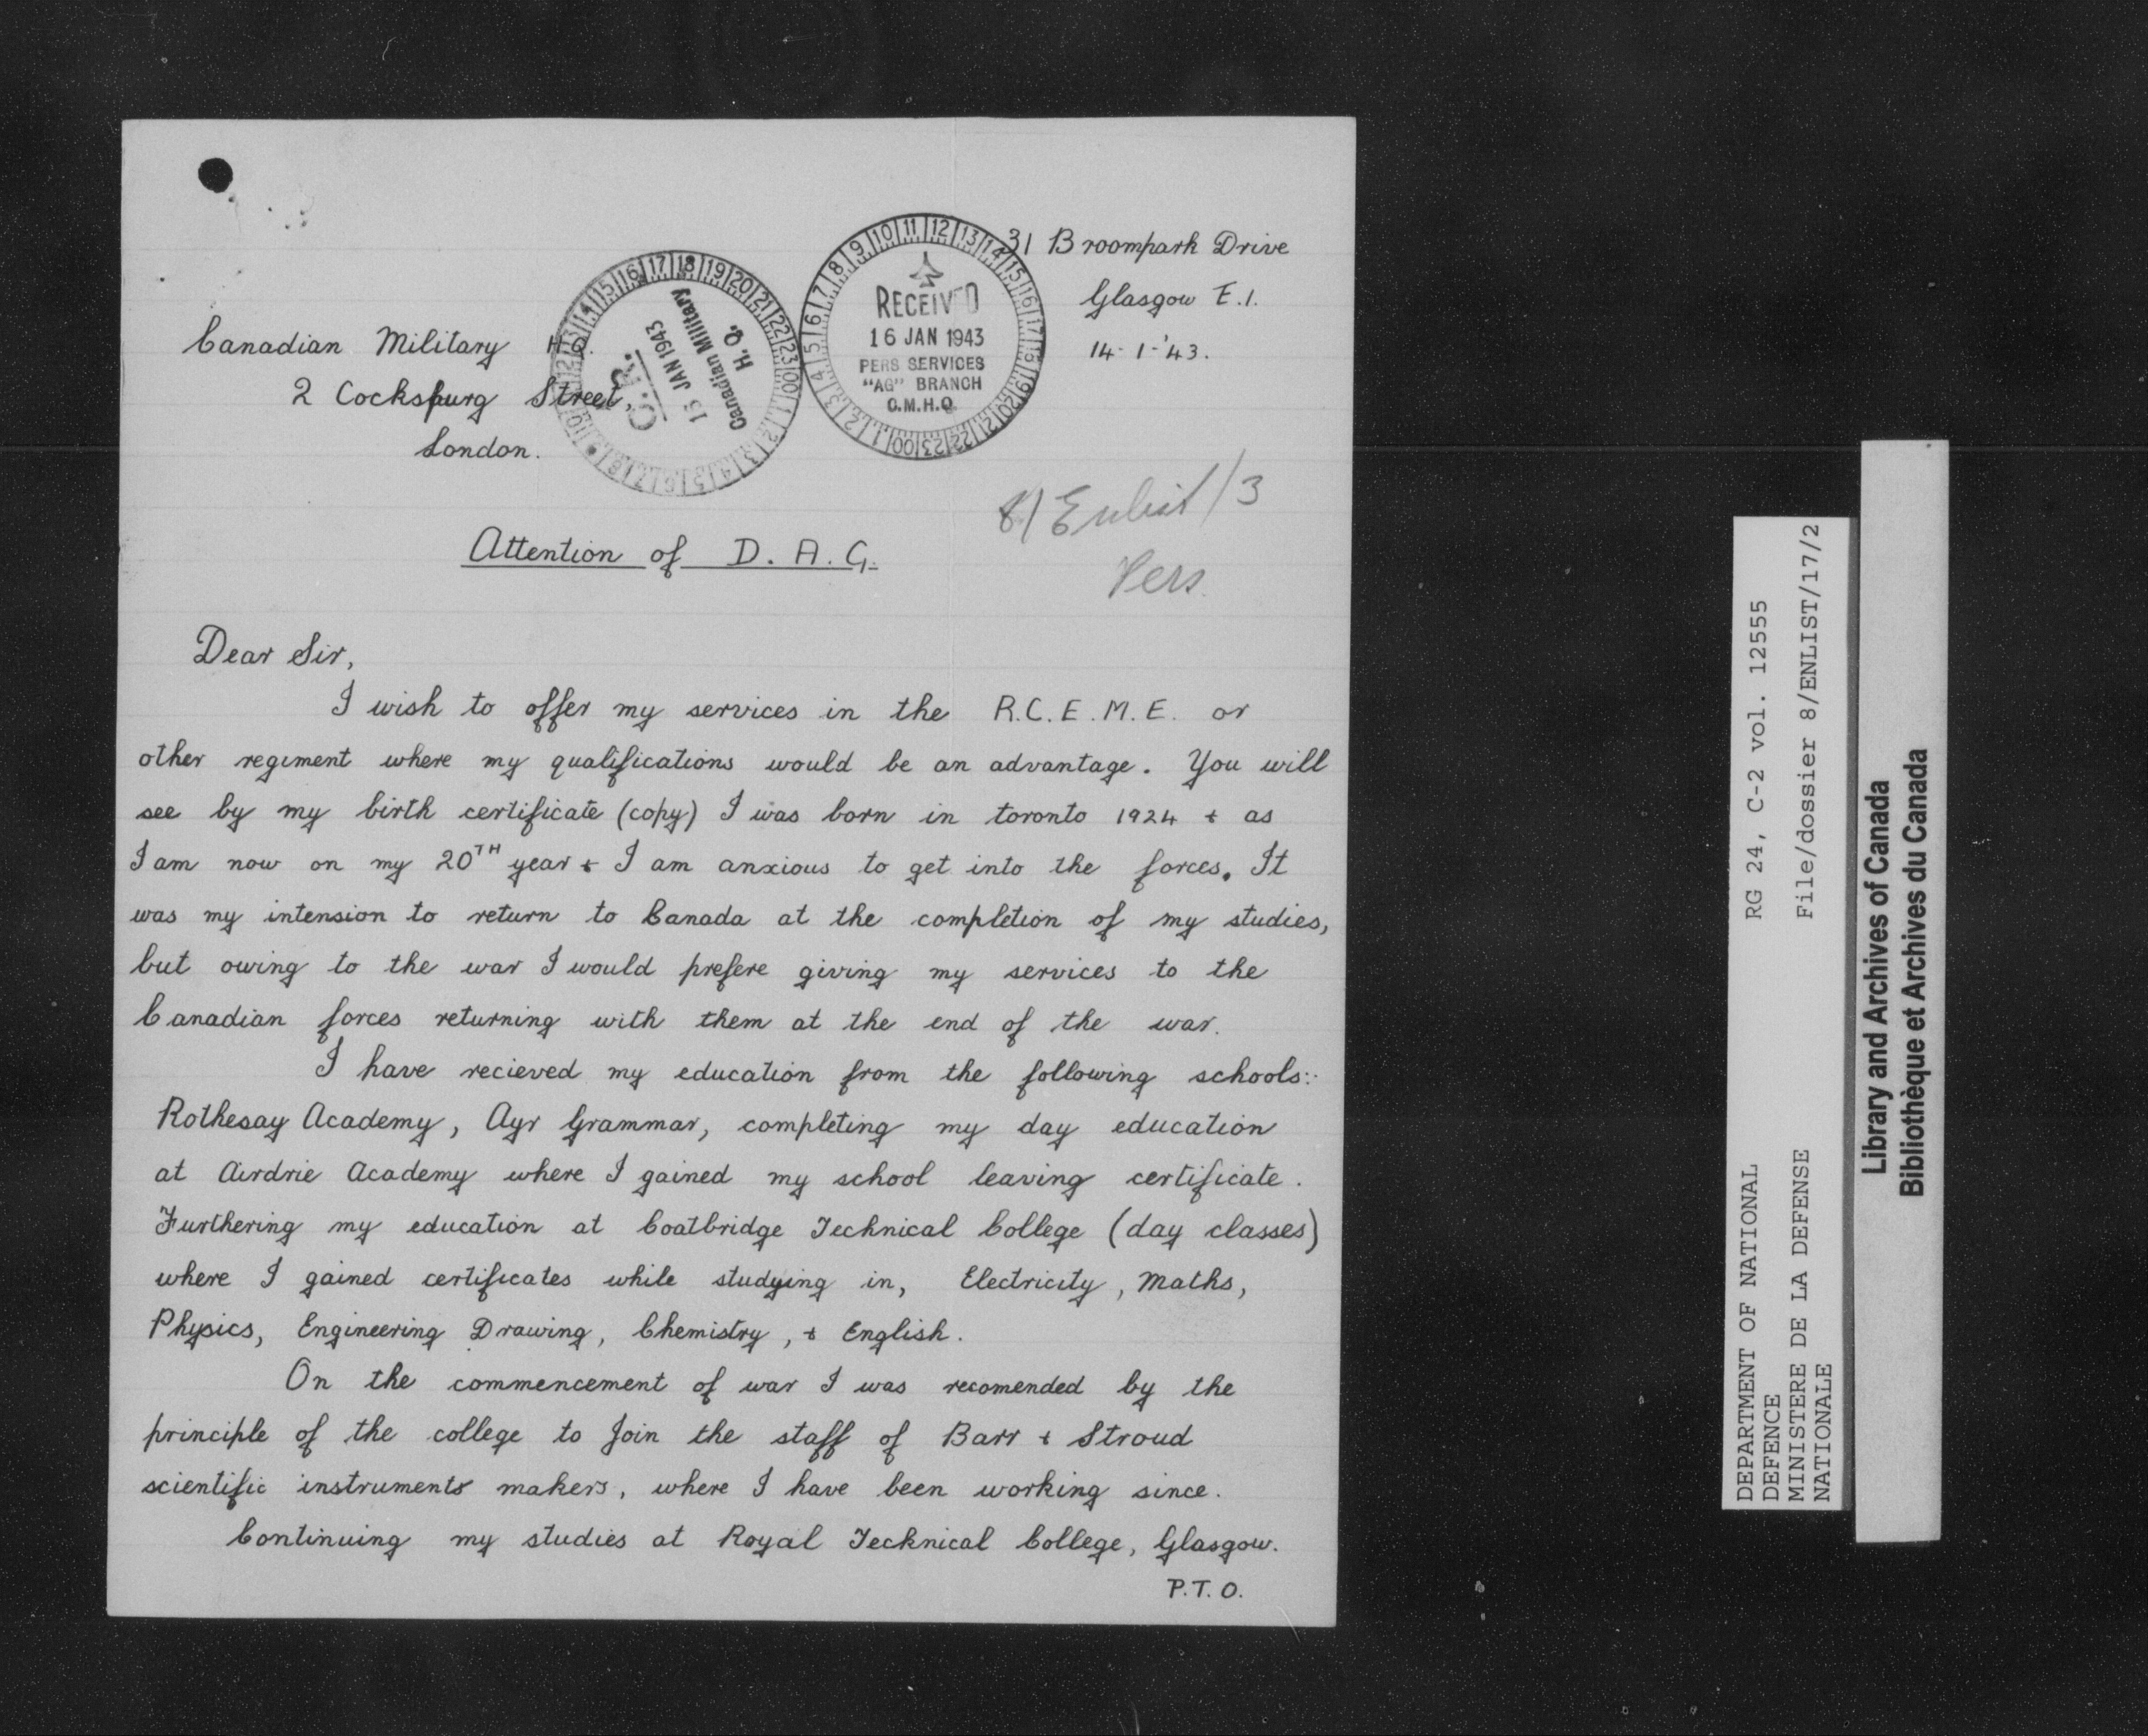 31 Broompark Drive
Glasgow E.1.
14-1-'43.
Canadian Military H.Q.
2 Cockspurg Street,
London.
C.R.
15 JAN 1943
Canadian Military
H.Q.
RECEIVED
16 JAN 1943
PERS SERVICES
"AG" BRANCH
C.M.H.Q.
8/Enlist/3
Pers.
Attention of D.A.G.
Dear Sir,
I wish to offer my services in the R.C.E.M.E. or
other regiment where my qualifications would be an advantage. You will
see by my birth certificate (copy) I was born in toronto 1924 + as
I am now on my 20TH year + I am anxious to get into the forces. It
was my intension to return to Canada at the completion of my studies,
but owing to the war I would prefere giving my services to the
Canadian forces returning with them at the end of the war.
I have recieved my education from the following schools:-
Rothesay Academy, Ayr Grammar, completing my day education
at Airdrie Academy where I gained my school leaving certificate.
Furthering my education at Coatbridge Technical College (day classes)
where I gained certificates while studying in, Electricity, Maths,
Physics, Engineering Drawing, Chemistry, + English.
On the commencement of war I was recomended by the
principle of the college to Join the staff of Barr + Stroud
scientific instruments makers, where I have been working since.
Continuing my studies at Royal Technical College, Glasgow.
P.T.O.
DEPARTMENT OF NATIONAL
DEFENCE
MINISTERE DE LA DEFENSE
NATIONALE
RG 24, C-2 vol. 12555
File/dossier 8/ENLIST/17/2
Library and Archives of Canada
Bibliothèque et Archives du Canada